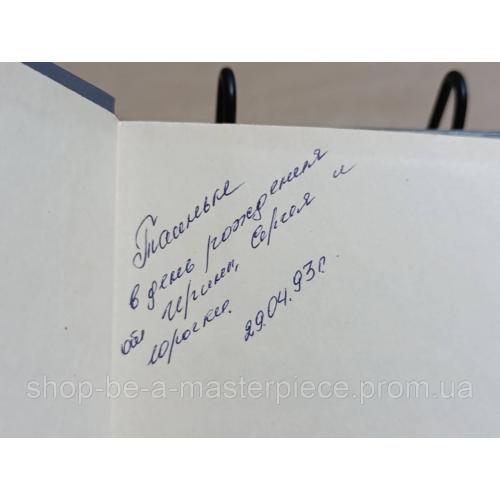 Таиньке
в день рождения
от Ирины, Сергея и
Юрочки.
29.04.93г.
shop-be-a-masterpiece.prom.ua